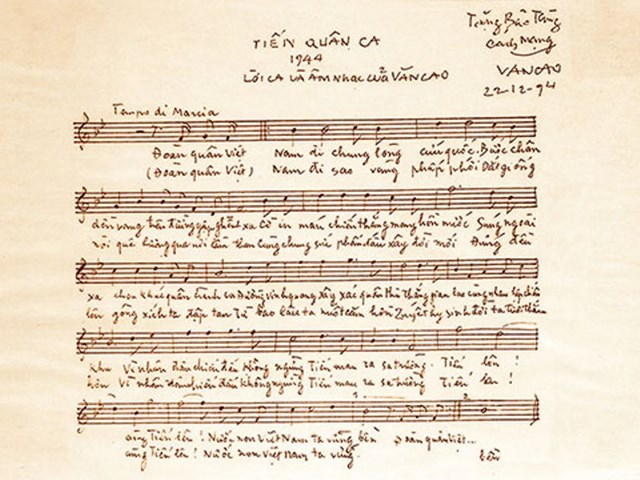 TIẾN QUÂN CA
1944
LỜI CA VÀ ÂM NHẠC CỦA VĂN CAO
Tặng Bảo Tàng
Cách Mạng
VĂN CAO
22-12-94
Tempo di Marcia
Đoàn quân Việt Nam đi chung lòng cứu quốc. Bước chân
(Đoàn quân Việt) Nam đi sao vàng phấp phới Dắt giống
dồn vang trên đường gập ghềnh xa. Cờ in máu chiến thắng mang hồn nước Súng ngoài
nòi quê hương qua nơi lầm than Cùng chung sức phấn đấu xây đời mới Đứng đều
xa chen khúc quân hành ca Đường vinh quang xây xác quân thù Thắng gian lao cùng nhau lập chiến
lên gông xích ta đập tan Từ bao lâu ta nuốt căm hờn Quyết hy sinh đời ta tươi thắm
khu Vì nhân dân chiến đấu không ngừng Tiến mau ra sa trường. Tiến lên !
hơn Vì nhân dân chiến đấu không ngừng Tiến mau ra sa trường Tiến lên !
cùng Tiến lên ! Nước non Việt Nam ta vững bền Đoàn quân Việt...
cùng Tiến lên ! Nước non Việt Nam ta vững. bền